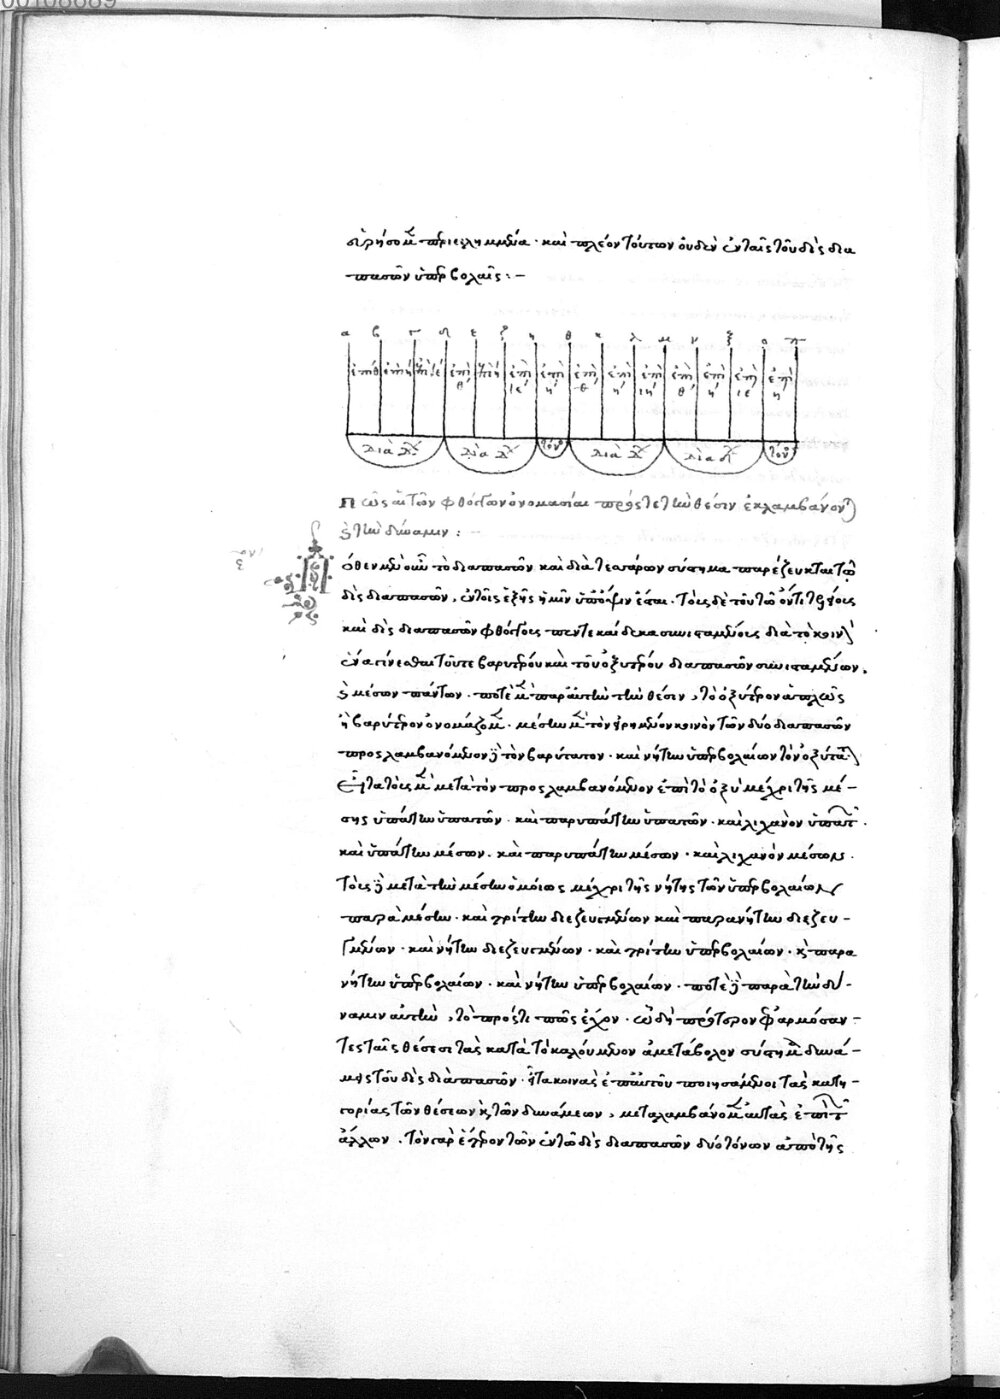 αἱρήσομεν περιειλημμένα · καὶ πλέον τούτων οὐδὲν ἐν ταῖς τοῦ δὶς δια
πασῶν ὑπερβολαῖς : –
α β γ δ ε ζ η θ κ λ μ ν ξ ο π
ἐπὶ θ΄ ἐπὶ η΄ ἐπὶ ιε΄ ἐπὶ θ΄ ἐπὶ η΄ ἐπὶ ιε΄ ἐπὶ η΄ ἐπὶ θ΄ ἐπὶ η΄ ἐπὶ ιη΄ ἐπὶ θ΄ ἐπὶ η΄ ἐπὶ ιε ἐπὶ η΄
διὰ δ διὰ δ τόν διὰ δ διὰ δ τόν
Πῶς αἱ τῶν φθόγγων ὀνομασίαι πρός τε τὴν θέσιν ἐκλαμβάνονται
καὶ τὴν δύναμιν : –
Πόθεν μὲν οὖν τὸ διαπασῶν καὶ διὰ τεσσάρων σύστημα παρέζευκται τῶ
δὶς διαπασῶν, ἐν τοῖς ἑξῆς ἡμῖν ὑπόψιν ἔσται. τοὺς δὲ τοῦ τῶ ὄντι τελείους
καὶ δὶς διαπασῶν φθόγγους πεντεκαίδεκα συνισταμένους διὰ τὸ κοινὸν
ἕνα γίνεσθαι τοῦ τε βαρυτέρου καὶ τοῦ ὀξυτέρου διαπασῶν συνισταμένων.
καὶ μέσον πάντων · ποτὲ μὲν παρ' αὐτὴν τὴν θέσιν, τὸ ὀξύτερον ἁπλῶς
ἢ βαρύτερον ὀνομάζομεν · μέσην μὲν τὸν εἰρημένον κοινὸν τῶν δύο διαπασῶν
προσλαμβανόμενον δὲ τὸν βαρύτατον · καὶ νήτην ὑπερβολαίων τὸν ὀξύτατον
εἶτα τοὺς μὲν μετὰ τὸν προσλαμβανόμενον ἐπὶ τὸ ὀξὺ μέχρι τῆς μέ–
σης ὑπάτην ὑπατῶν · καὶ παρυπάτην ὑπατῶν · καὶ λιχανὸν ὑπατῶν ·
καὶ ὑπάτην μέσων. καὶ παρυπάτην μέσων · καὶ λιχανὸν μέσων ·
τοὺς δὲ μετὰ τὴν μέσην ὁμοίως μέχρι τῆς νήτης τῶν ὑπερβολαίων
παραμέσην · καὶ τρίτην διεζευγμένων καὶ παρανήτην διεζευ–
γμένων · καὶ νήτην διεζευγμένων · καὶ τρίτην ὑπερβολαίων · καὶ παρα
νήτην ὑπερβολαίων · καὶ νήτην ὑπερβολαίων · ποτὲ δὲ παρὰ τὴν δύ–
ναμιν αὐτὴν, τὸ πρός τι πῶς ἔχον · ὧ δὴ πρότερον ἐφαρμόσαν–
τες ταῖς θέσεσι τὰς κατὰ τὸ καλούμενον ἀμετάβολον σύστημα δυνά–
μεις τοῦ δὶς διαπασῶν · εἶτα κοινὰς ἐπ' αὐτοῦ ποιησάμενοι τὰς κατη–
γορίας τῶν θέσεων καὶ τῶν δυνάμεων, μεταλαμβάνομεν αὐτὰς ἐπὶ τῶν
ἄλλων. τὸν γὰρ ἕτερον τῶν ἐν τῶ δὶς διαπασῶν δύο τόνων ἀπὸ τῆς